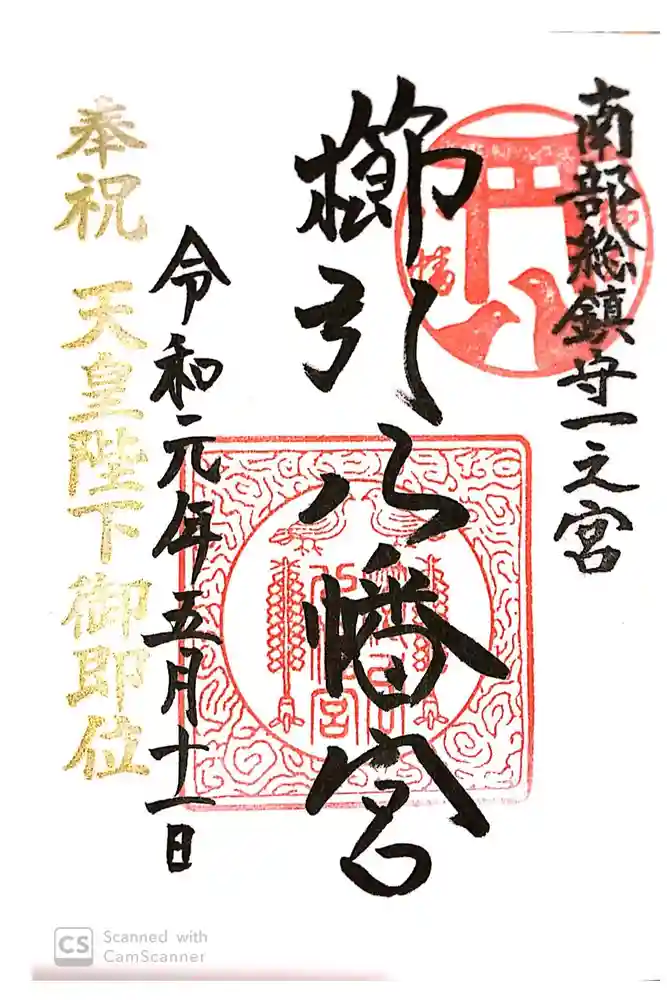 南部総鎮守一之宮
櫛引八幡宮
令和元年五月十一日
奉祝 天皇陛下御即位
CS Scanned with
CamScanner